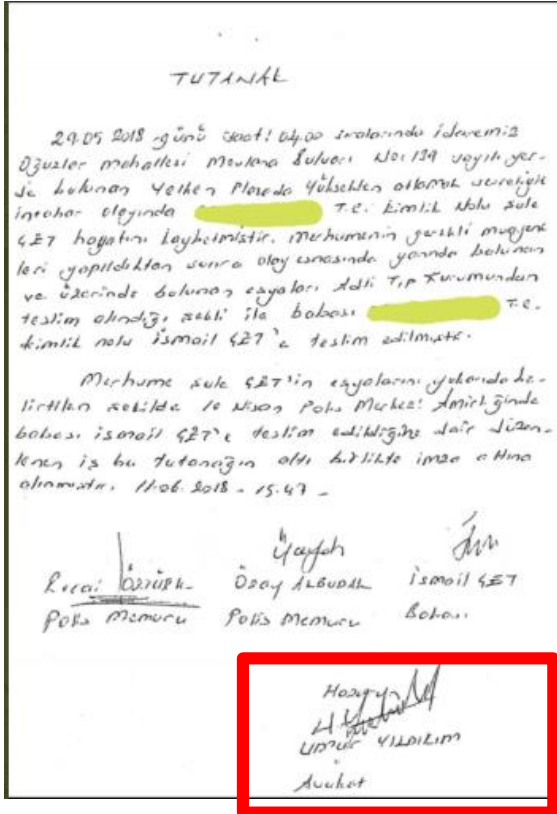 TUTANAK
29.05.2018 günü saat: 04.00 sıralarında idaremiz
Oğuzlar mahallesi Mevlana Bulvarı No: 139 sayılı yer-
de bulunan Yelken Plazada Yüksekten atlamak suretiyle
intihar olayında T.C. kimlik nolu Şule
ÇET hayatını kaybetmiştir. Merhumenin gerekli muayene
leri yapıldıktan sonra olay esnasında yanında bulunan
ve üzerinde bulunan eşyaları Adli Tıp Kurumundan
teslim alındığı şekli ile babası T.C.
kimlik nolu İsmail ÇET'e teslim edilmiştir.
Merhume Şule ÇET'in eşyalarını yukarıda be-
lirtilen şekilde 10 Nisan Polis Merkezi Amirliğinde
babası ismail ÇET'e teslim edildiğine dair düzen-
lenen iş bu tutanağın altı birlikte imza altına
alınmıştır. 11.06.2018 - 15.47 -
Recai Polis Memuru
Özay ALBUDAK Polis Memuru
İsmail ÇET Babası
Hazır
Umur YILDIRIM
Avukat